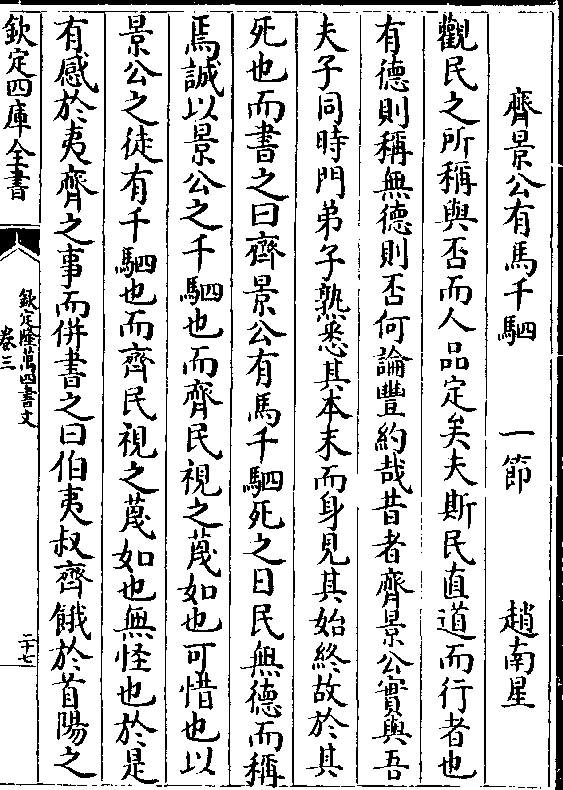 齊景公有馬千駟　一節　趙南星
觀民之所稱與否而人品定矣夫斯民直道而行者也
有德則稱無德則否何論豐約哉昔者齊景公實與吾
夫子同時門弟子熟悉其本末而身見其始終故於其
死也而書之曰齊景公有馬千駟死之日民無德而稱
焉誠以景公之千駟也而齊民視之蔑如也可惜也以
景公之徒有千駟也而齊民視之蔑如也無怪也於是
有感於夷齊之事而併書之曰伯夷叔齊餓於首陽之
欽定四庫全書
欽定隆萬四書文
卷三
二十七